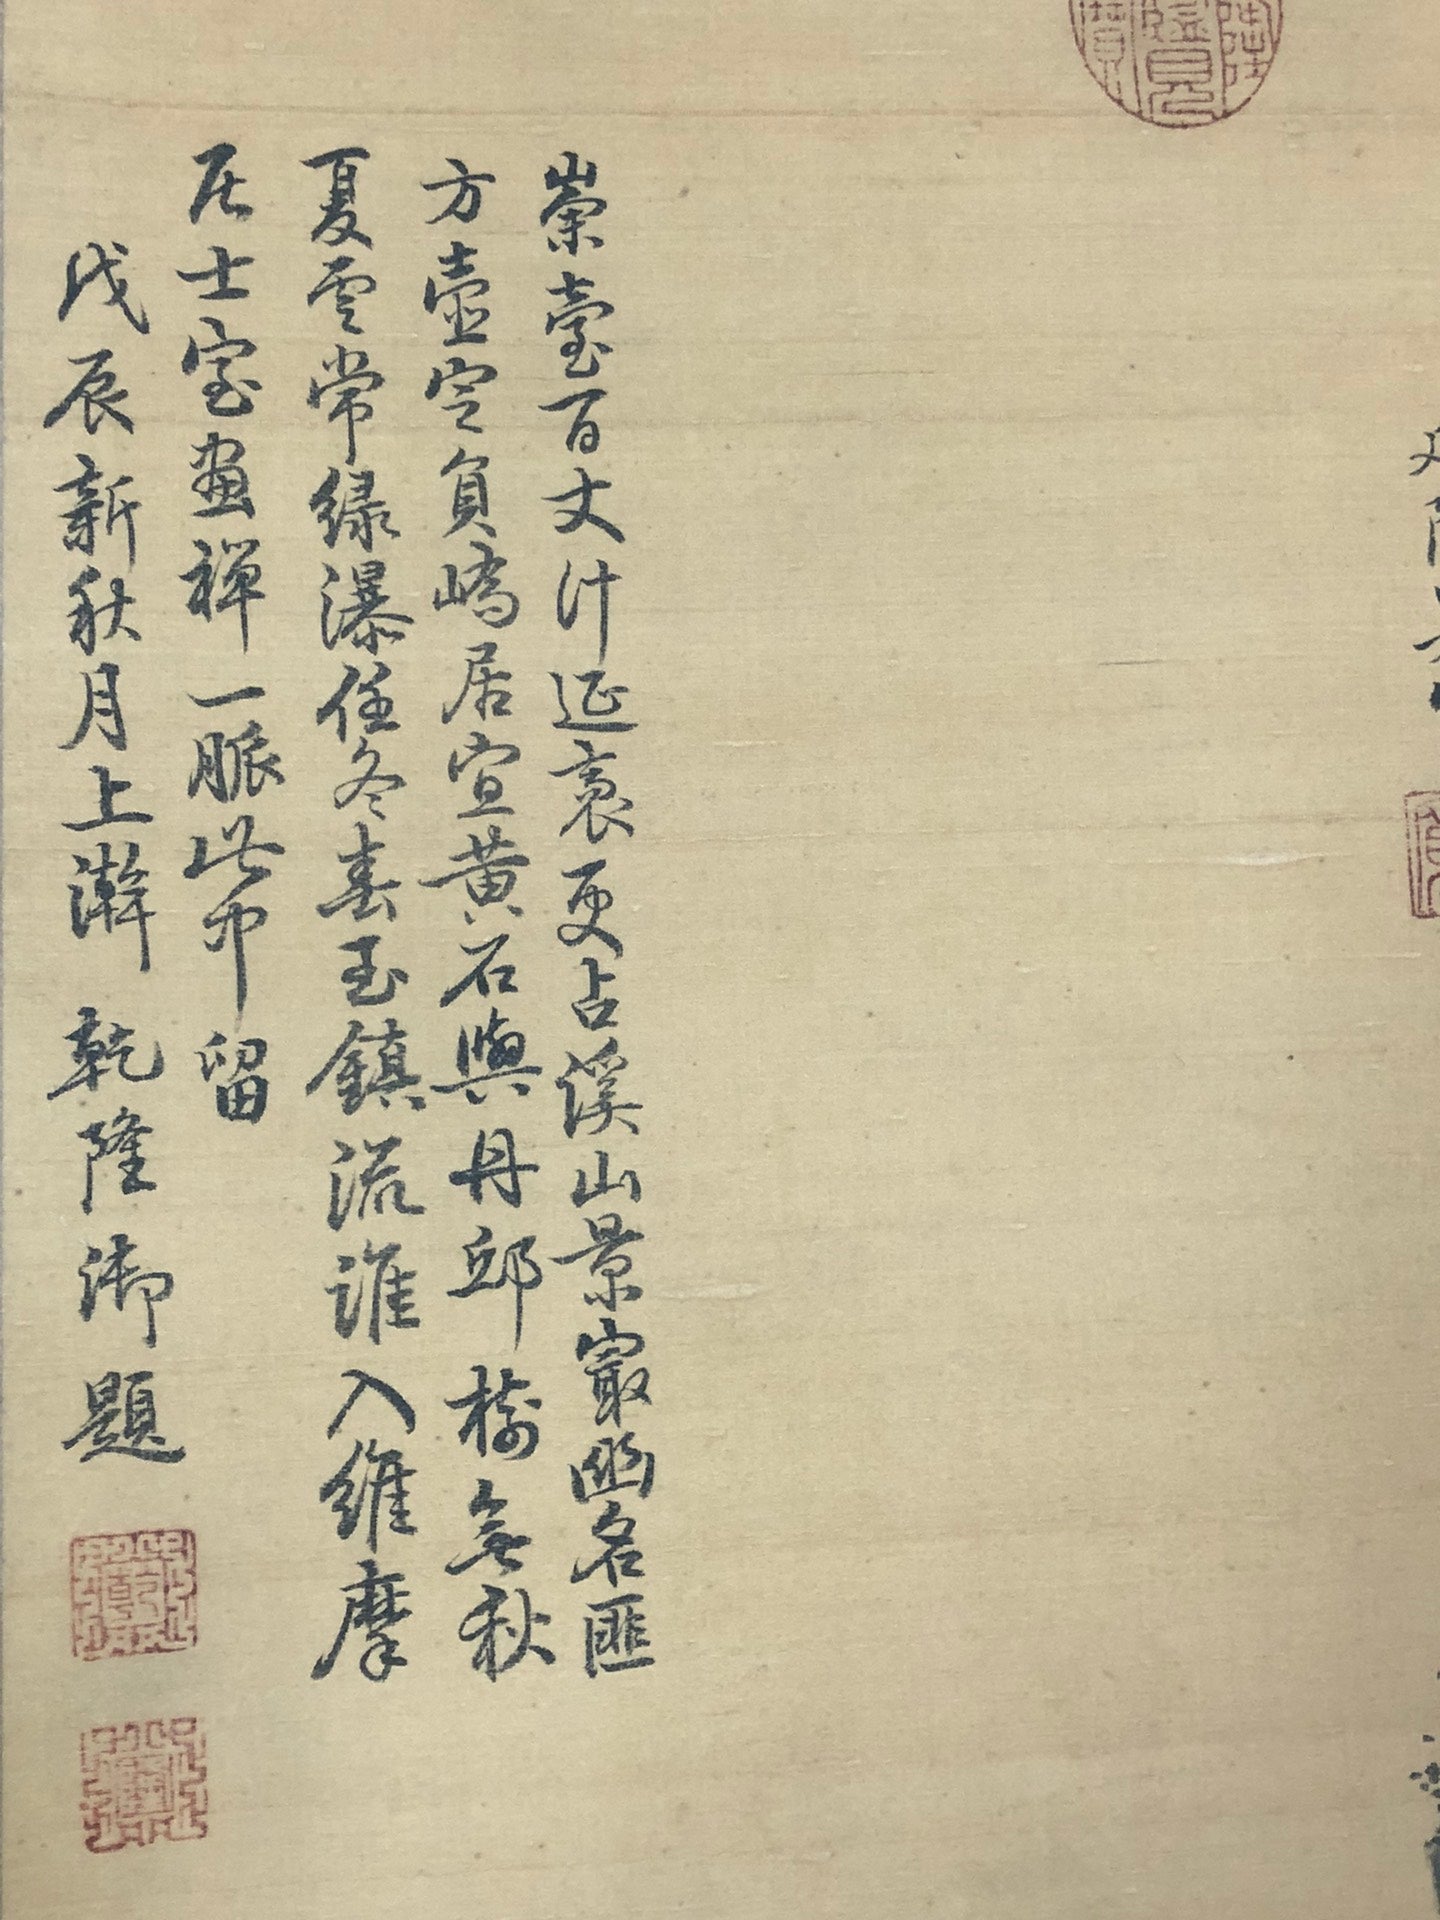 崇臺百丈計延袤更占溪山景冣幽名匪
方壺定員嶠居宣黃石與丹邱樹無秋
夏雲常緑瀑任冬春玉鎮流誰入維摩
居士室畫禪一脈此中留
戊辰新秋月上澣乾隆御題